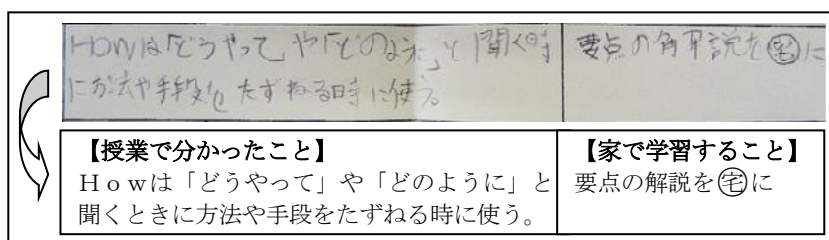 Howは「どうやって」や「どのように」と聞く時
に方法や手段をたずねる時に使う。
要点の解説を㊀に
【授業で分かったこと】
Ｈｏｗは「どうやって」や「どのように」と
聞くときに方法や手段をたずねる時に使う。
【家で学習すること】
要点の解説を宅に